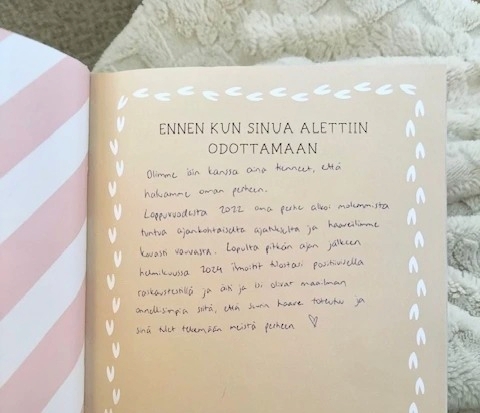 ENNEN KUN SINUA ALETTIIN
ODOTTAMAAN
Olimme isin kanssa aina tienneet, että
haluamme oman perheen.
Loppuvuodesta 2022 oma perhe alkoi molemmista
tuntua ajankohtaiselta ajatukselta ja haaveilimme
kovasti vauvasta. Lopulta pitkän ajan jälkeen
helmikuussa 2024 ilmoitit tulostasi positiivisella
raskaustestillä ja äiti ja isi olivat maailman
onnellisimpia siitä, että suurin haave toteutuu ja
sinä tulet tekemään meistä perheen ♡